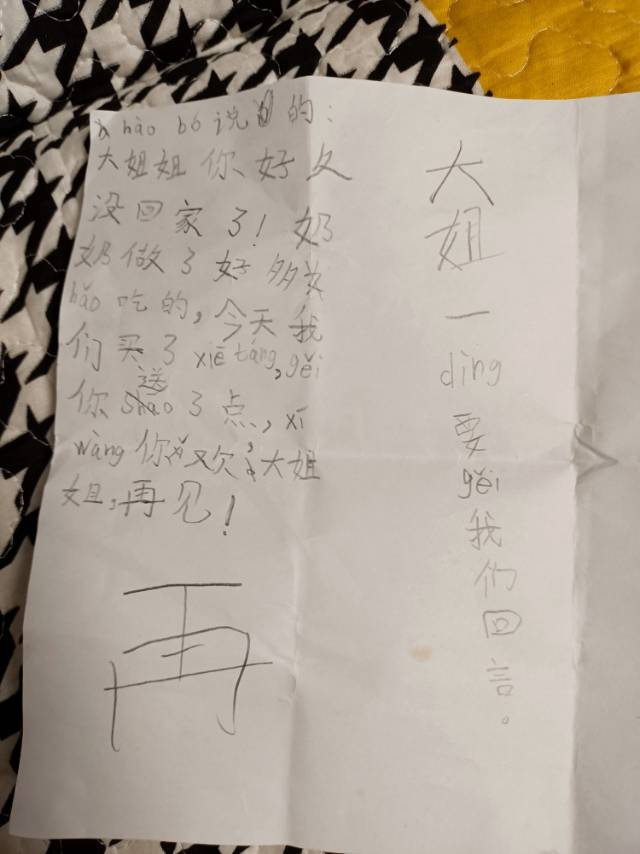 hào bó 说的：
大姐姐你好久
没回家了！奶
奶做了好多
hǎo吃的，今天我
们买了xiē táng，gěi
你送了点，xī
wàng你xǐ欢，大姐
姐，再见！
再
大姐一dìng要gěi我们回言。